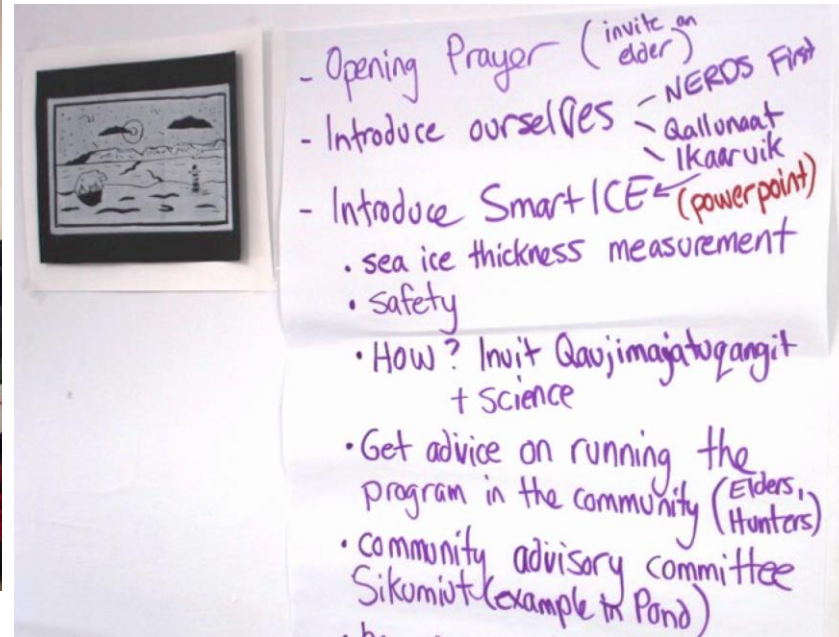 - Opening Prayer (invite an elder)
- Introduce ourselves - NERDS First
- Qallunaat
- Ikaarvik
- Introduce SmartICE (powerpoint)
• sea ice thickness measurement
• safety
• How? Inuit Qaujimajatuqangit
+ Science
• Get advice on running the
program in the community (Elders,
Hunters)
• community advisory committee
Sikumiut (example in Pond)